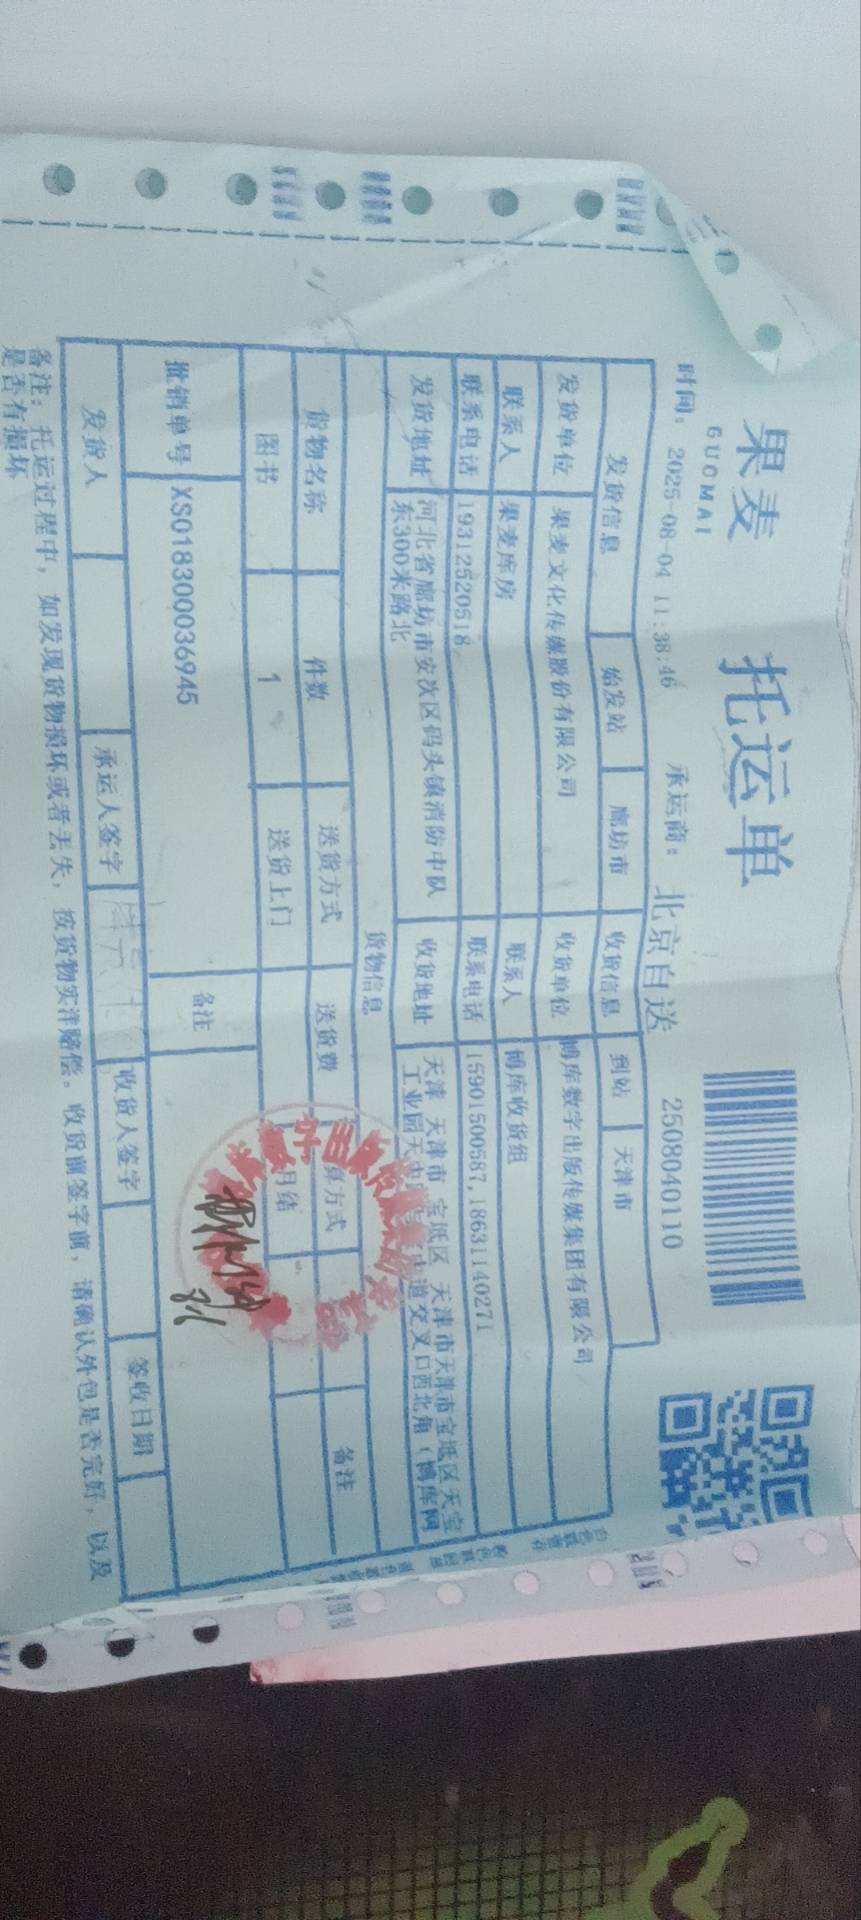 果麦
GUOMAI
托运单
时间：2025-08-04 11:38:46 承运商：北京自送 2508040110
发货信息 始发站 廊坊市 收货信息 到站 天津市
发货单位 果麦文化传媒股份有限公司 收货单位 博库数字出版传媒集团有限公司
联系人 果麦库房 联系人 博库收货组
联系电话 19312520518 联系电话 15901500587,18631140271
发货地址 河北省廊坊市安次区码头镇消防中队 收货地址 天津 天津市 宝坻区 天津市天津市宝坻区天宝
东300米路北 工业园天 道交叉口西北角（博库网
货物信息
货物名称 件数 送货方式 送货费 方式 备注
图书 1 送货上门 月结
批销单号 XS018300036945 备注
发货人 承运人签字 收货人签字 签收日期
备注：托运过程中，如发现货物损坏或者丢失，按货物实洋赔偿。收货前签字前，请确认外包是否完好，以及
是否有损坏